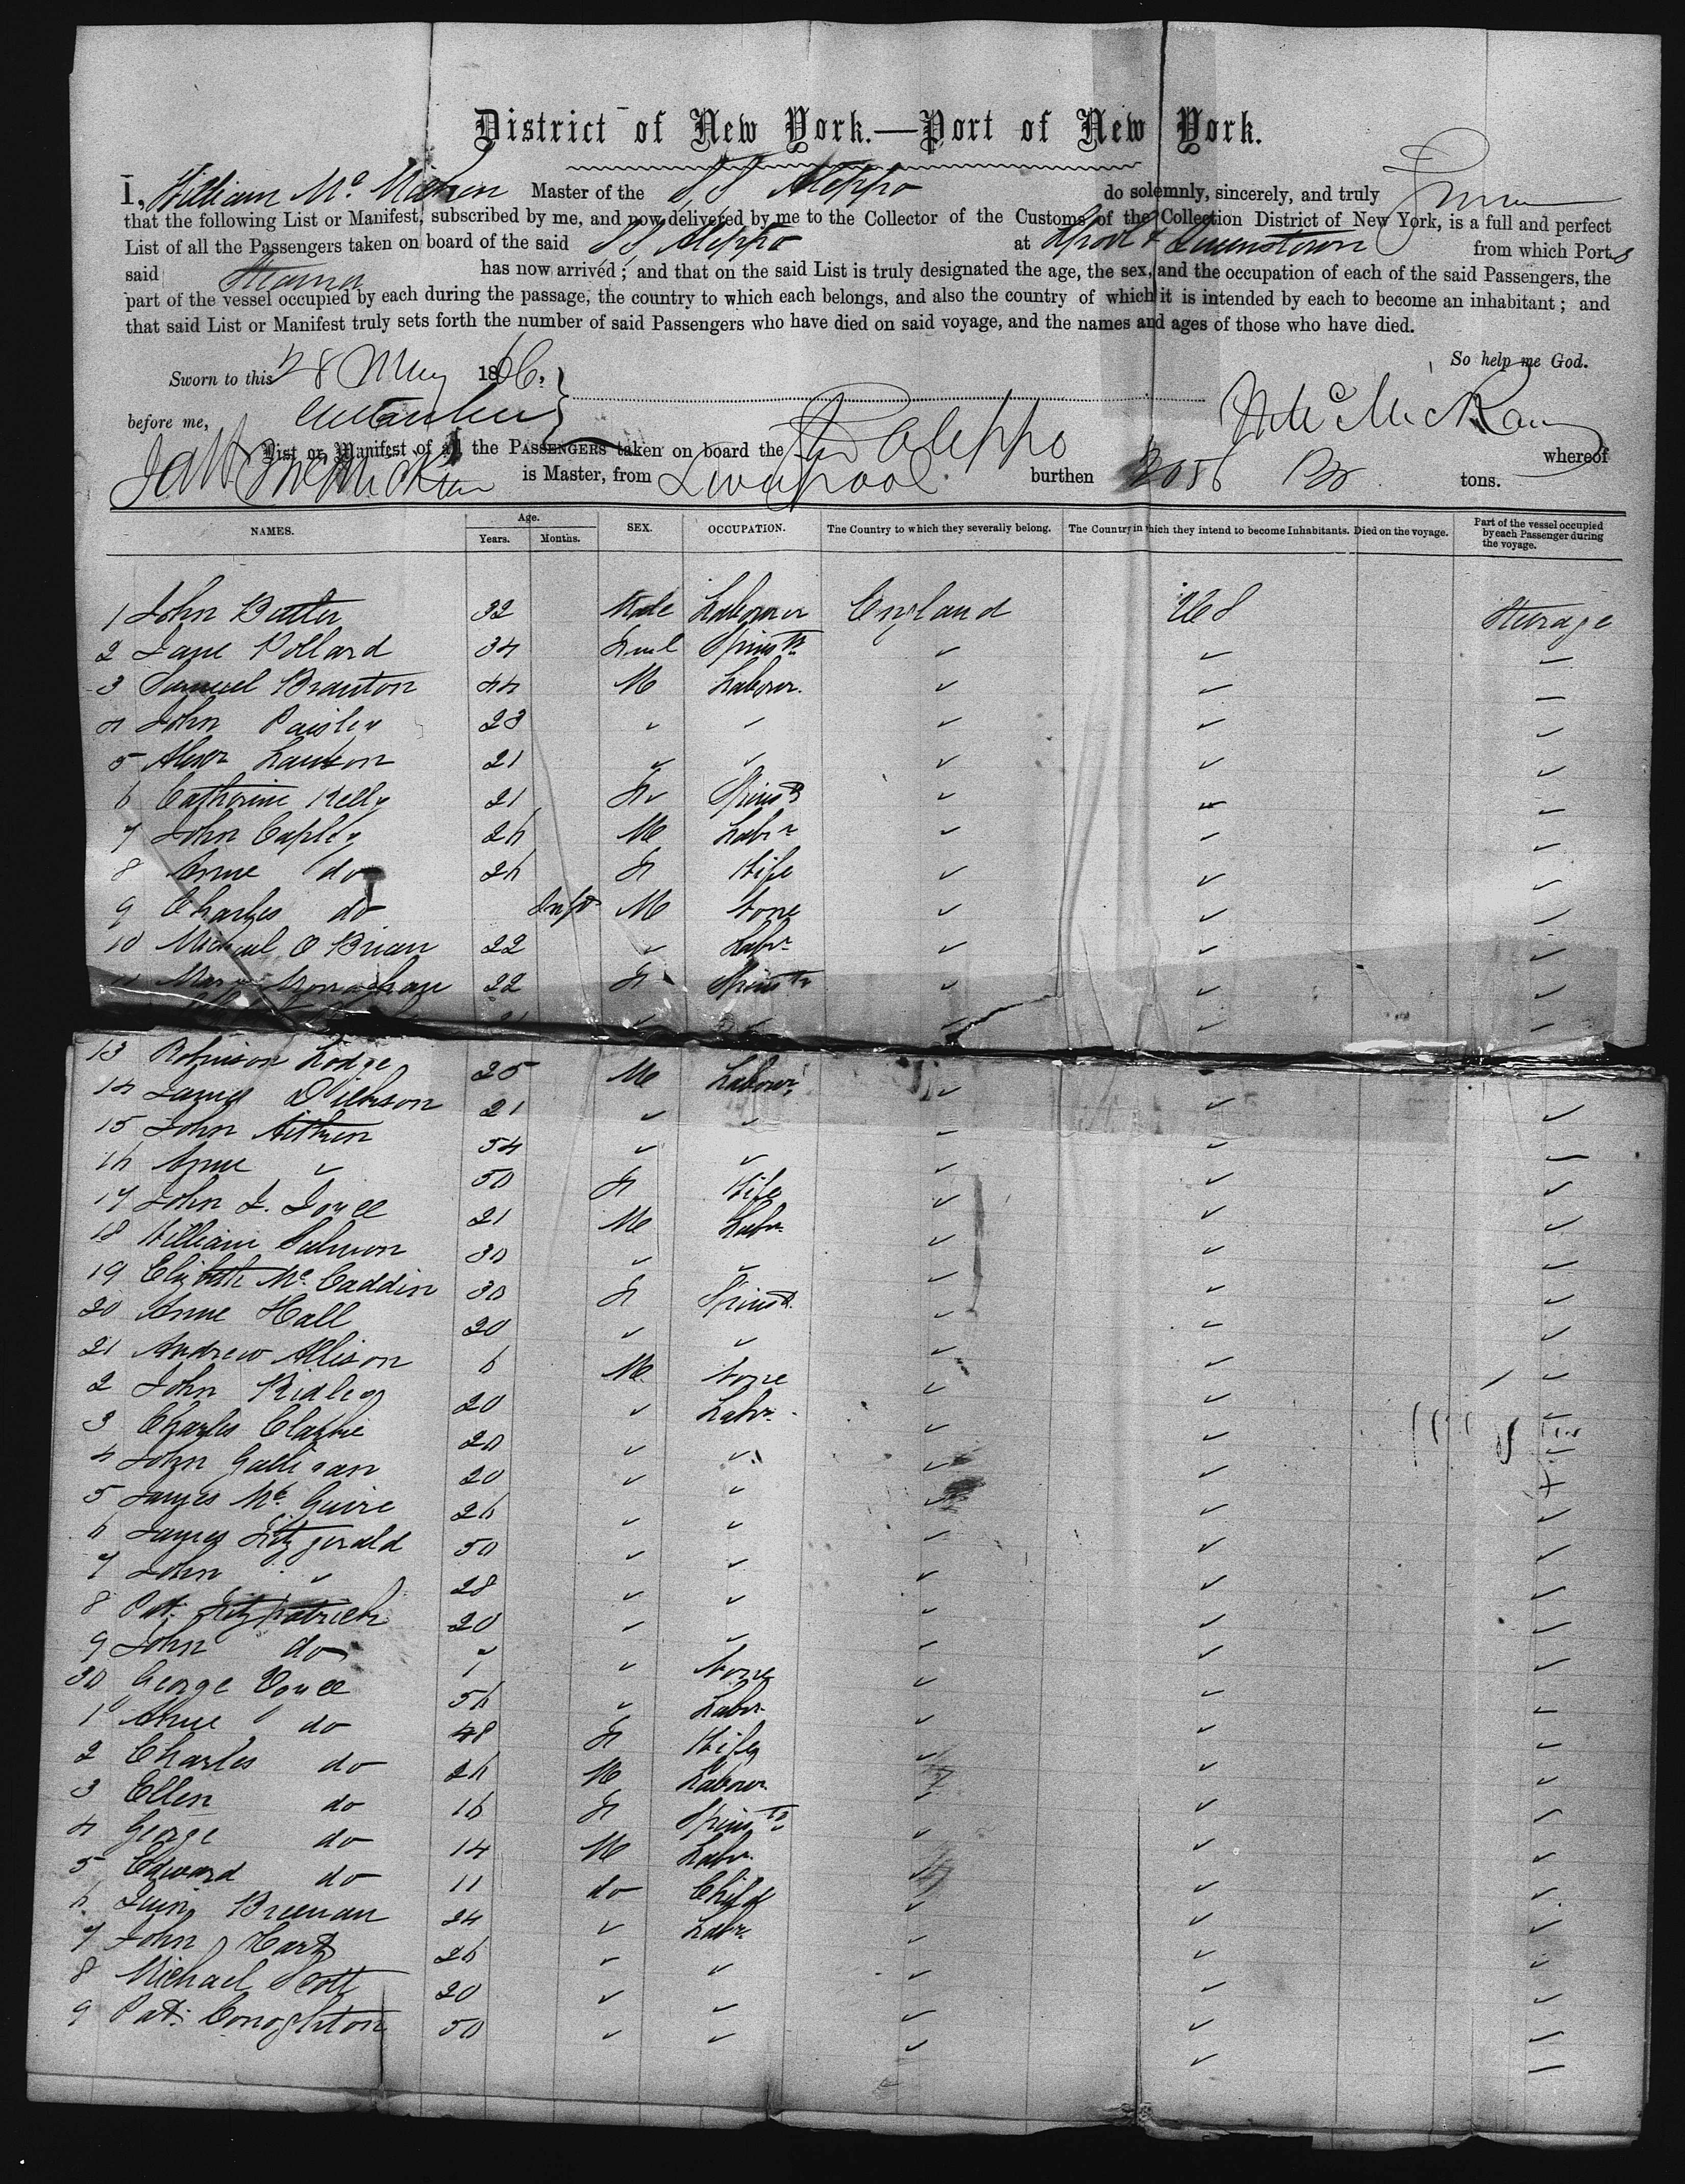 District of New York.—Port of New York.
I, William Mc. Master of the SS Aleppo do solemnly, sincerely, and truly
that the following List or Manifest, subscribed by me, and now delivered by me to the Collector of the Customs of the Collection District of New York, is a full and perfect
List of all the Passengers taken on board of the said SS Aleppo at Lpool & Queenstown from which Ports
said Steamer has now arrived; and that on the said List is truly designated the age, the sex, and the occupation of each of the said Passengers, the
part of the vessel occupied by each during the passage, the country to which each belongs, and also the country of which it is intended by each to become an inhabitant; and
that said List or Manifest truly sets forth the number of said Passengers who have died on said voyage, and the names and ages of those who have died.
So help me God.
Sworn to this 28 May 1866,
before me,
List or Manifest of all the PASSENGERS taken on board the Aleppo whereof
is Master, from Liverpool burthen 2056 tons.
NAMES. Age. Years. Months. SEX. OCCUPATION. The Country to which they severally belong. The Country in which they intend to become Inhabitants. Died on the voyage. Part of the vessel occupied by each Passenger during the voyage.
1 John Butler 32 Male Labourer England US Steerage
2 Jane Pollard 34 Feml Spinstr
3 Samuel Branton 44 M Labour
4 John Paisley 23 " "
5 Alexr Lawson 21 " "
6 Catherine Kelly 21 F Spinstr
7 John Caply 26 M Labr
8 Anne do 26 F Wife
9 Charles do Inft M None
10 Michael O Brian 22 " Labr
11 Mary Monaghan 22 F Spinstr
21 "
13 Robinson Lodge 25 M Labour
14 James Dickson 21 " "
15 John Aitken 54 " "
16 Anne " 50 F Wife
17 John J. Joyce 21 M Labr
18 William Salmon 30 " "
19 Elizbth Mc Caddin 30 F Spinstr
20 Anne Hall 20 " "
21 Andrew Allison 6 M None
2 John Ridley 20 " Labr
3 Charles 20 " "
4 John Galligan 20 " "
5 James Mc Guire 26 " "
6 James Fitzgerald 50 " "
7 John " 28 " "
8 Pat. Fitzpatrick 20 " "
9 John do 1 " None
30 George 56 " Labr
1 Anne do 48 F Wife
2 Charles do 26 M Labour
3 Ellen do 16 F Spinstr
4 George do 14 M Labr
5 Edward do 11 do Child
6 Breenan 24 " Labr
7 John Hart 26 " "
8 Michael Scott 20 " "
9 Pat. Conoghton 50 " "